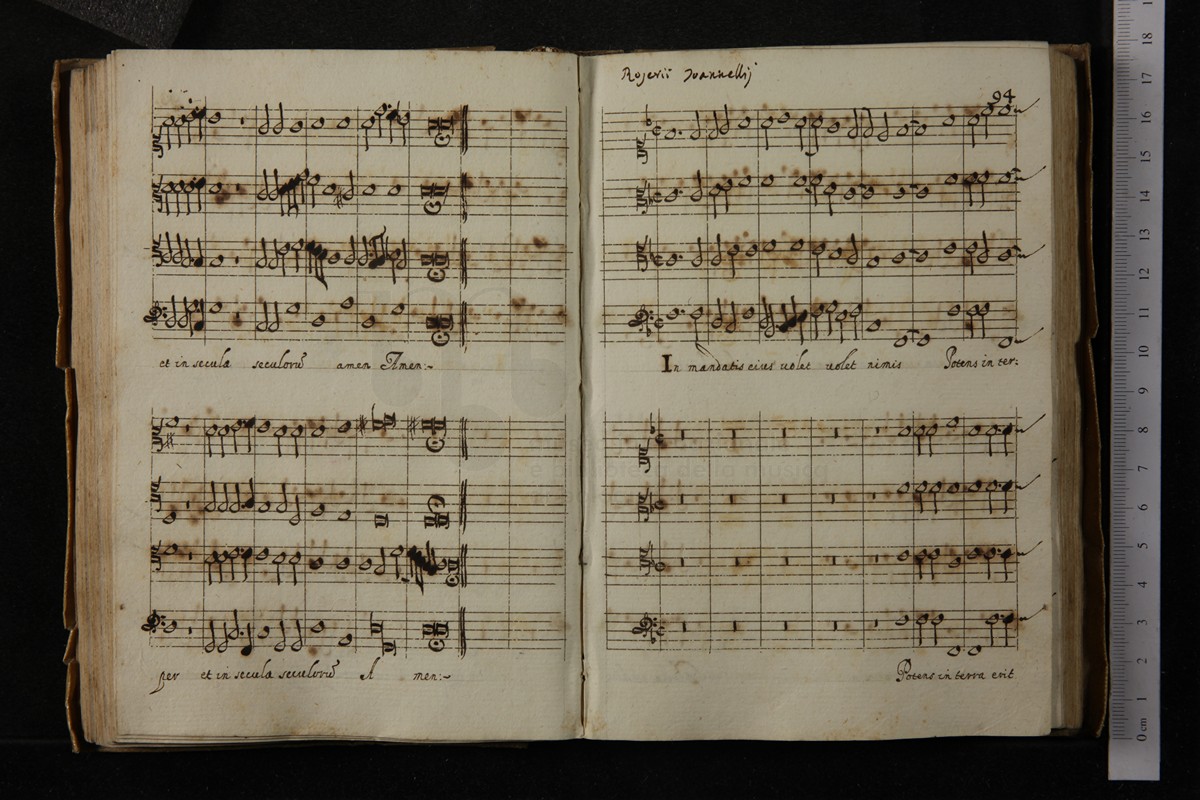 et in secula seculorũ amen Amen:~
per et in secula seculorũ A men:~
Rogerii Joannellij
94
In mandatis eius volet volet nimis Potens in ter:
Potens in terra erit
e biblioteca della musica
0 cm 1 2 3 4 5 6 7 8 9 10 11 12 13 14 15 16 17 18